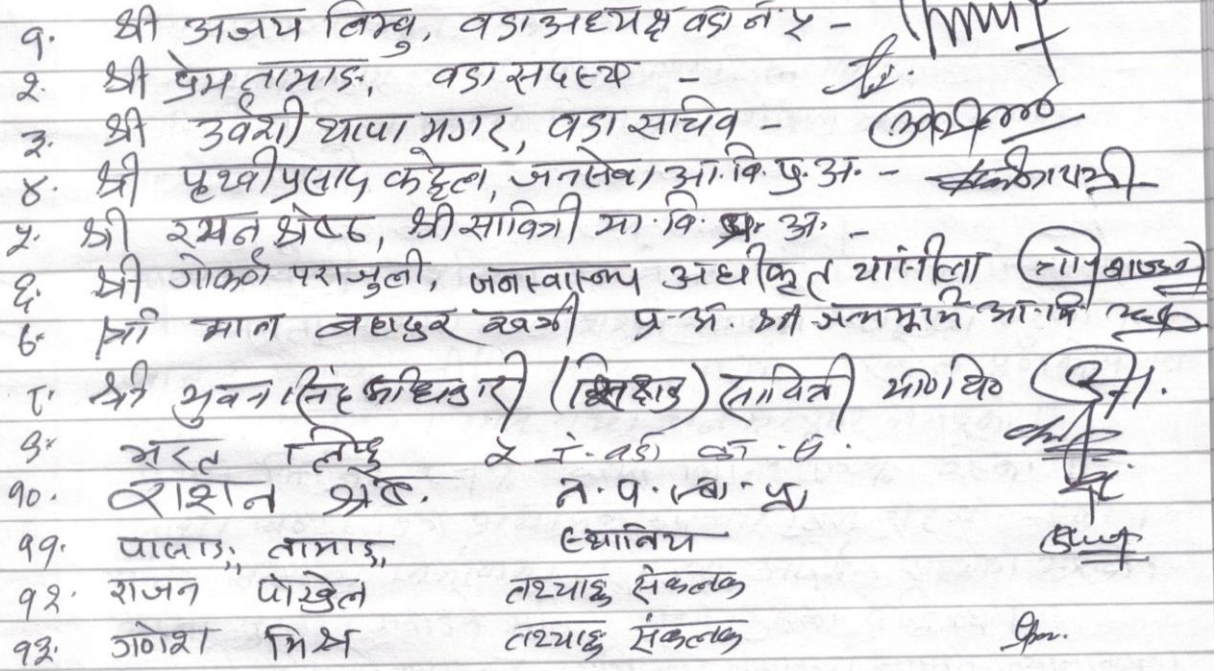 १. श्री अजय लिम्बु, वडा अध्यक्ष वडा नं २ -
२. श्री प्रेम तामाङ, वडा सदस्य -
३. श्री उर्वशी थापा मगर, वडा सचिव -
४. श्री पृथ्वीप्रसाद कट्टेल, जनसेवा आ.वि. प्र.अ. -
५. श्री रमन श्रेष्ठ, श्री सावित्री मा.वि. प्र. अ. -
६. श्री गोकर्ण पराजुली, जनस्वास्थ्य अधीकृत
७. श्री मान बहादुर खत्री प्र.अ. श्री जन्मभूमि आ.वि
८. श्री भुवन सिंह (शिक्षक) सावित्री मा०वि०
९. भरत २ नं. वडा
१०. रोशन श्रेष्ठ. न.पा.स्वा.
११. तामाङ स्थानिय
१२. राजन पोख्रेल तथ्याङ्क संकलक
१३. गणेश मिश्र तथ्याङ्क संकलक